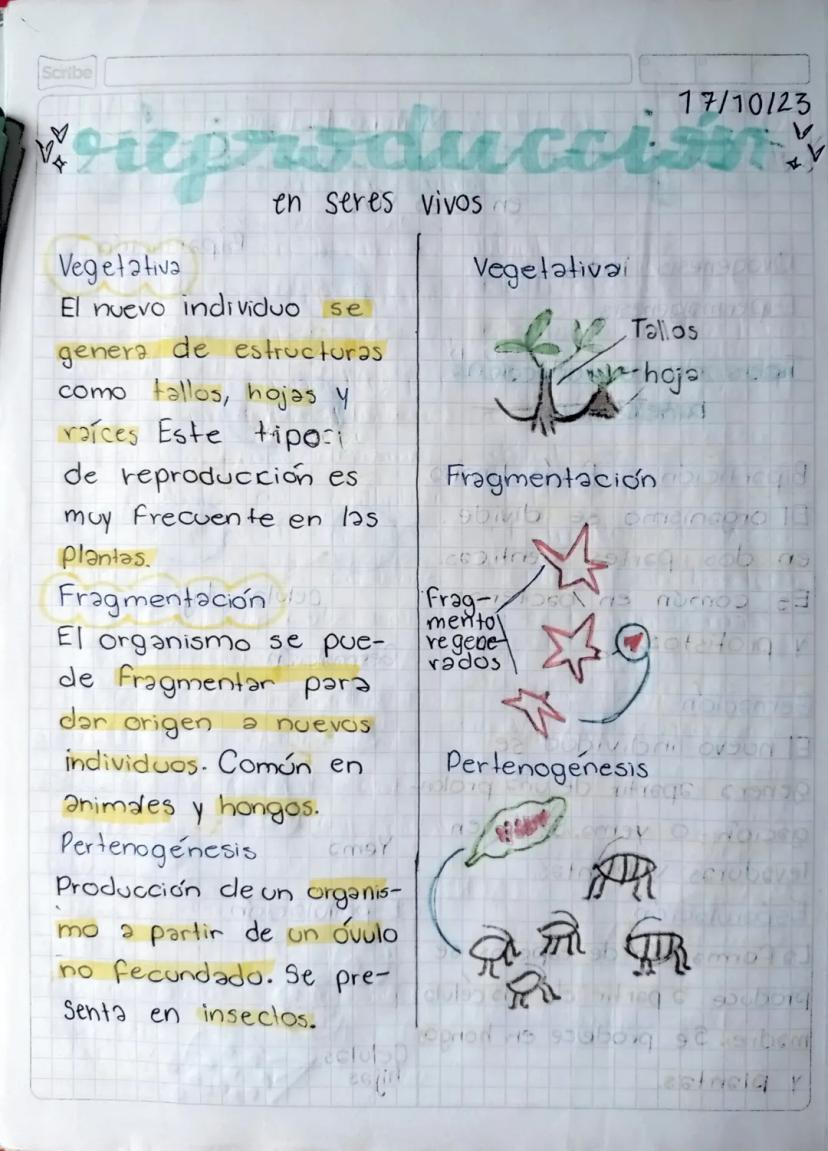 Scribe
17/10/23
reproducción
en seres vivos
Vegetativa
El nuevo individuo se
genera de estructuras
como tallos, hojas y
raíces Este tipo
de reproducción es
muy frecuente en las
plantas.
Fragmentación
El organismo se pue-
de fragmentar para
dar origen a nuevos
individuos. Común en
animales y hongos.
Pertenogénesis
Producción de un organis-
mo a partir de un óvulo
no fecundado. Se pre-
senta en insectos.
Vegetativa
Tallos
hoja
Fragmentación
Frag-
mento
regene-
rados
Pertenogénesis